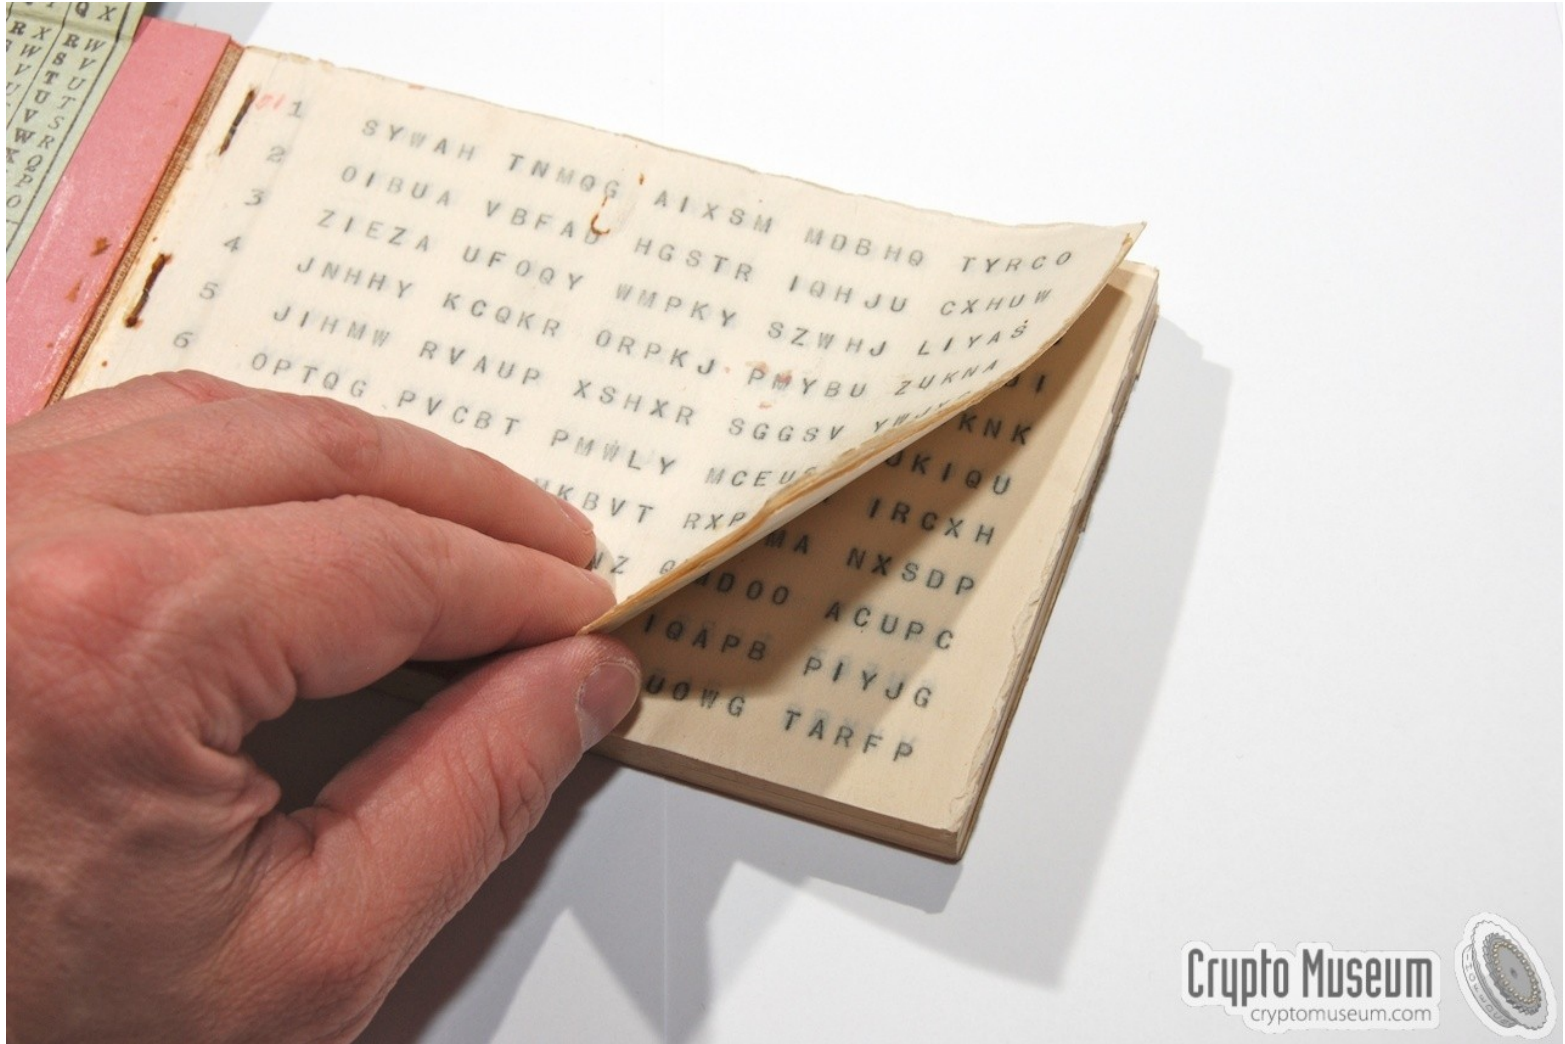 Q X
R X R W
W S V
V T U
U U T
V S
W R
X Q
P
O
1 SYWAH TNMQG AIXSM MDBHQ TYRCO
2 OIBUA VBFAD HGSTR IQHJU CXHUW
3 ZIEZA UFOQY WMPKY SZWHJ LIYAS
4 JNHHY KCQKR ORPKJ PMYBU ZUKNA
5 JIHMW RVAUP XSHXR SGGSV
6 OPTQG PVCBT PMWLY
KBVT
KNK
UKIQU
IRCXH
MA NXSDP
DOO ACUPC
IQAPB PIYJG
UOWG TARFP
Crypto Museum
cryptomuseum.com